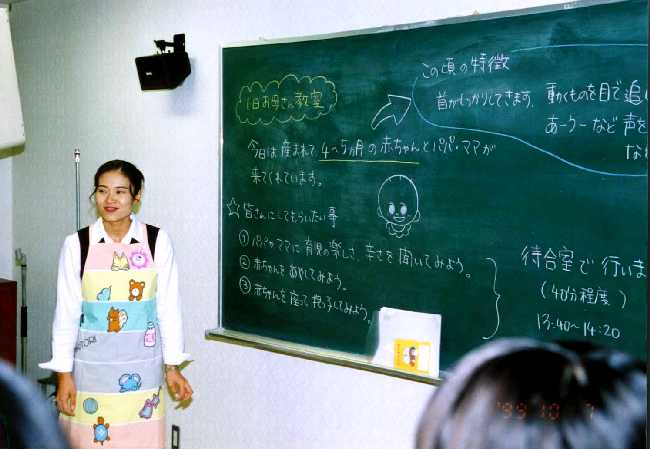 1日お母さん教室
今日は産まれて4~5カ月の赤ちゃんとパパ・ママが
来てくれています。
☆皆さんにしてもらいたい事
① パパやママに育児の楽しさ、辛さを聞いてみよう。
② 赤ちゃんをあやしてみよう。
③ 赤ちゃんを
この頃の特徴
首がしっかりしてきます。
動くものを目で追
あーうーなど声を
な
待合室で行いま
(40分程度)
13:40~14:20
'99 10 7